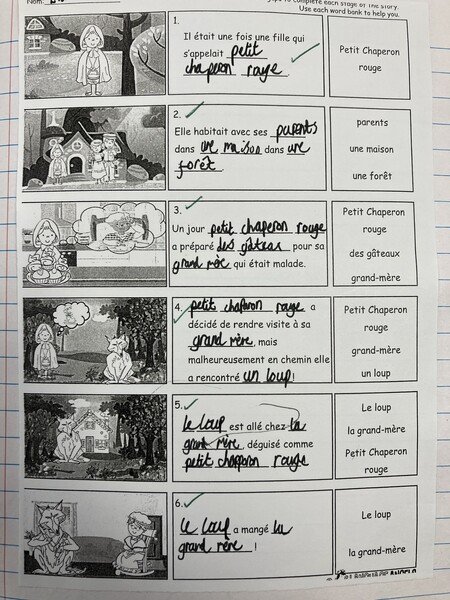 Nom:
gaps to complete each stage of the story.
Use each word bank to help you.
1.
Il était une fois une fille qui
s'appelait petit
chaperon rouge
Petit Chaperon
rouge
2.
Elle habitait avec ses parents
dans une maison dans une
forêt.
parents
une maison
une forêt
3.
Un jour petit chaperon rouge
a préparé des gâteas pour sa
grand mère qui était malade.
Petit Chaperon
rouge
des gâteaux
grand-mère
4.
petit chaparon rouge a
décidé de rendre visite à sa
grand mère, mais
malheureusement en chemin elle
a rencontré un loup!
Petit Chaperon
rouge
grand-mère
un loup
5.
Le loup est allé chez la
grand mère, déguisé comme
petit chapparon rouge
Le loup
la grand-mère
Petit Chaperon
rouge
6.
Le loup a mangé la
grand mère!
Le loup
la grand-mère